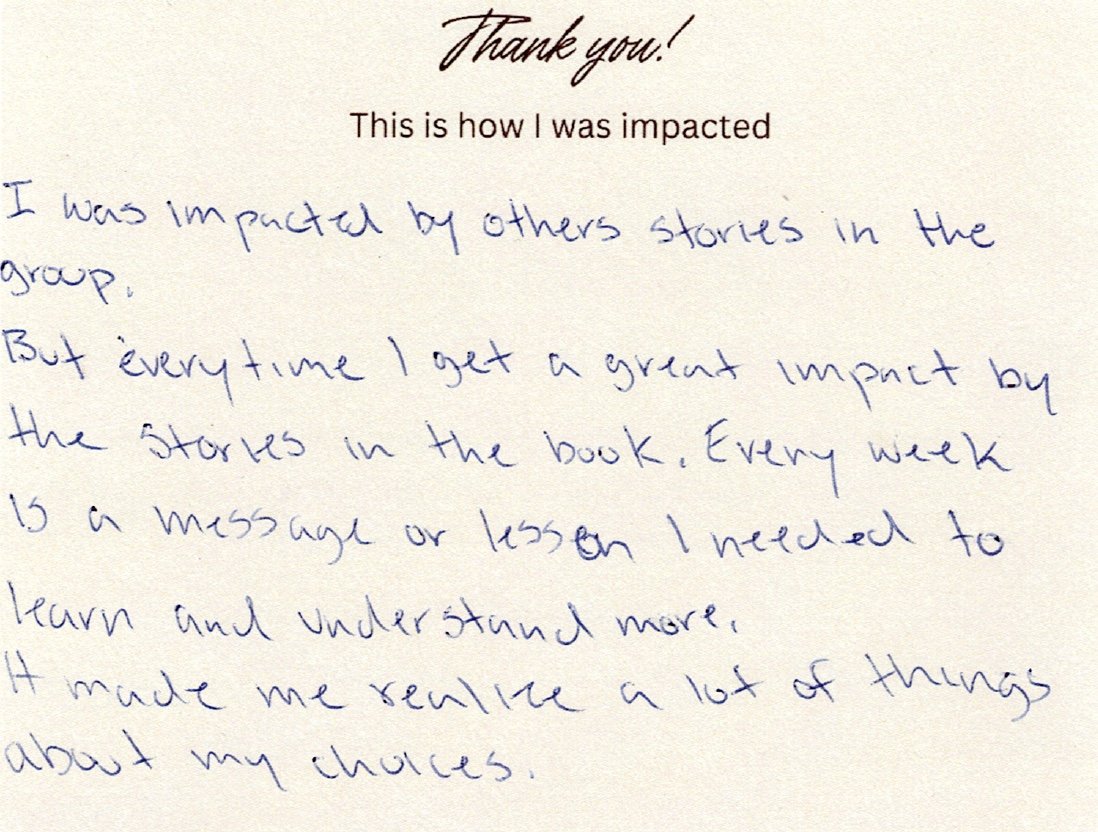 Thank you!
This is how I was impacted
I was impacted by others stories in the
group.
But everytime I get a great impact by
the stories in the book. Every week
is a message or lesson I needed to
learn and understand more.
It made me realize a lot of things
about my choices.